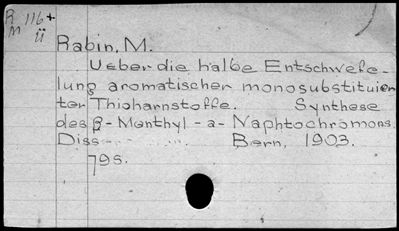 R 116+
M ü
Rabin, M.
Ueber die halbe Entschwefe-
lung aromatischer monosubstituier
ter Thioharnstoffe. Synthese
des β-Menthyl-a-Naphtochromons
Diss. Bern, 1903.
79s.